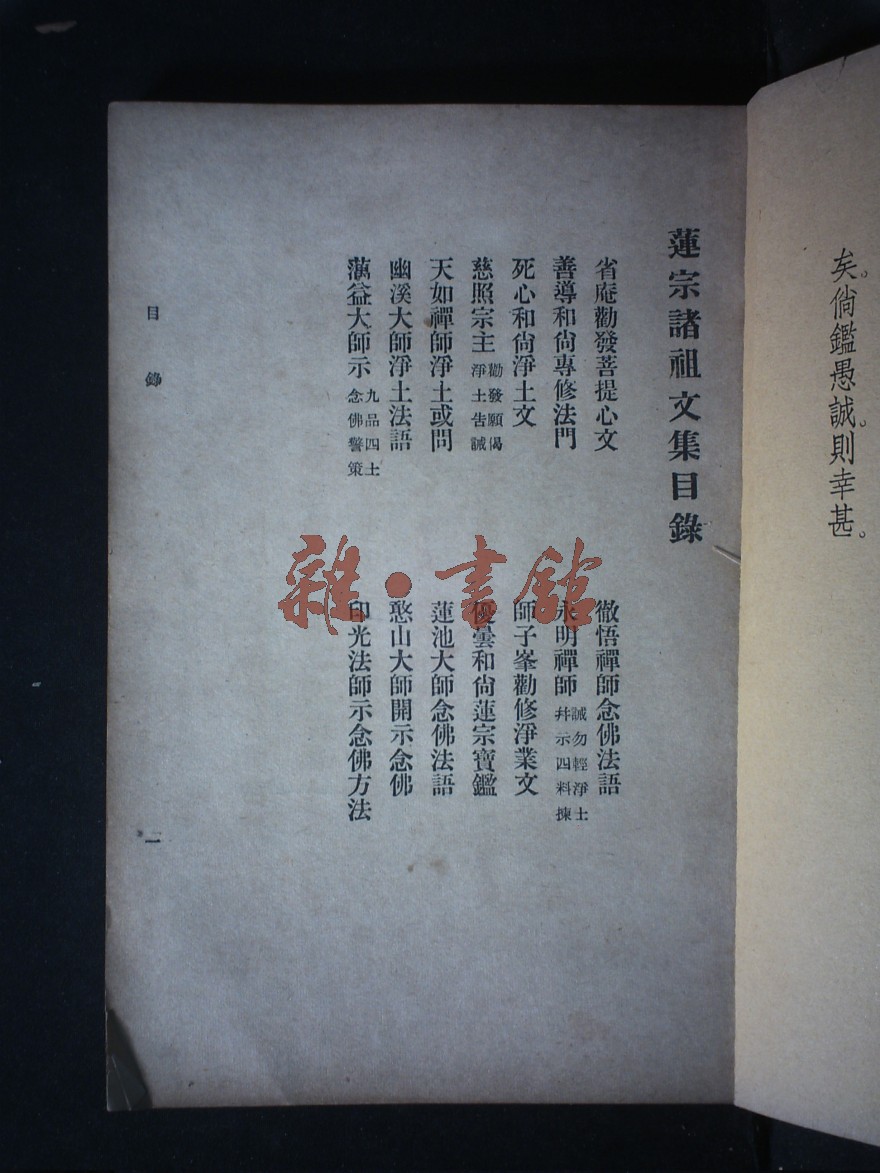 矣。倘鑑愚誠。則幸甚。
蓮宗諸祖文集目錄
省庵勸發菩提心文
徹悟禪師念佛法語
善導和尙專修法門
永明禪師 誡勿輕淨土
幷示四料揀
死心和尙淨土文
師子峯勸修淨業文
慈照宗主 勸發願偈
淨土吿誡
優曇和尙蓮宗寶鑑
天如禪師淨土或問
蓮池大師念佛法語
幽溪大師淨土法語
憨山大師開示念佛
蕅益大師示 九品四土
念佛警策
印光法師示念佛方法
目錄
二
雜·書館